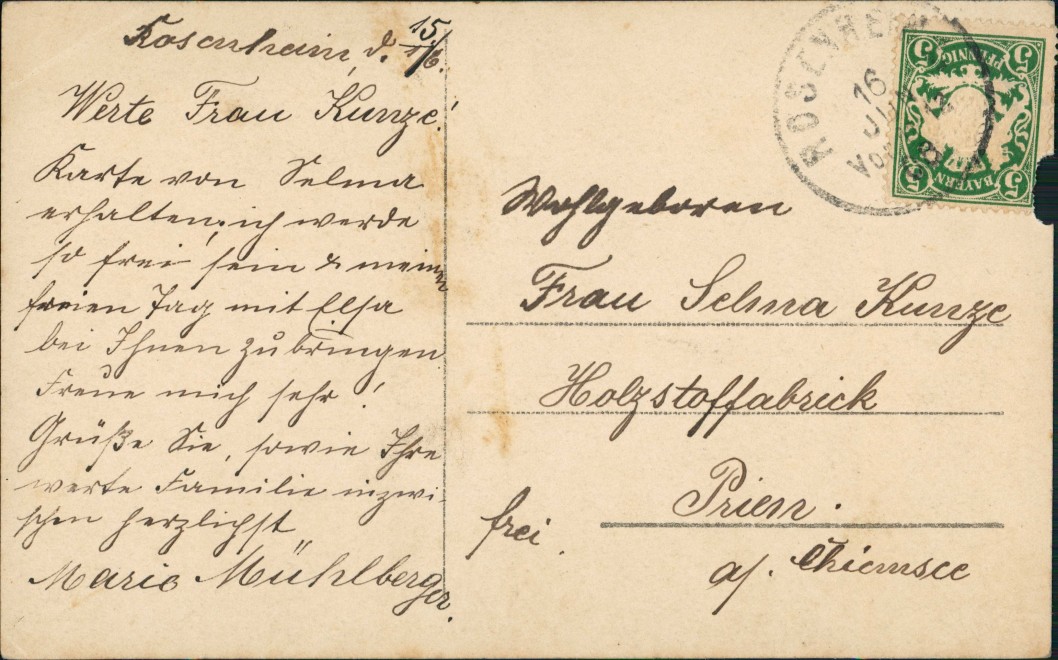 Rosenheim, d. 15/6.
Werte Frau Kunze!
Karte von Selma
erhalten, ich werde
so frei sein & meinen
freien Tag mit Elsa
bei Ihnen zubringen
Freue mich sehr!
Grüße Sie, sowie Ihre
werte Familie inzwi-
schen herzlichst
Marie Mühlberger.
Wohlgeboren
Frau Selma Kunze
Holzstoffabrick
Prien.
a/. Chiemsee
frei.
ROSENHEIM
16
JUN
5 PFENNIG 5
5 BAYERN 5